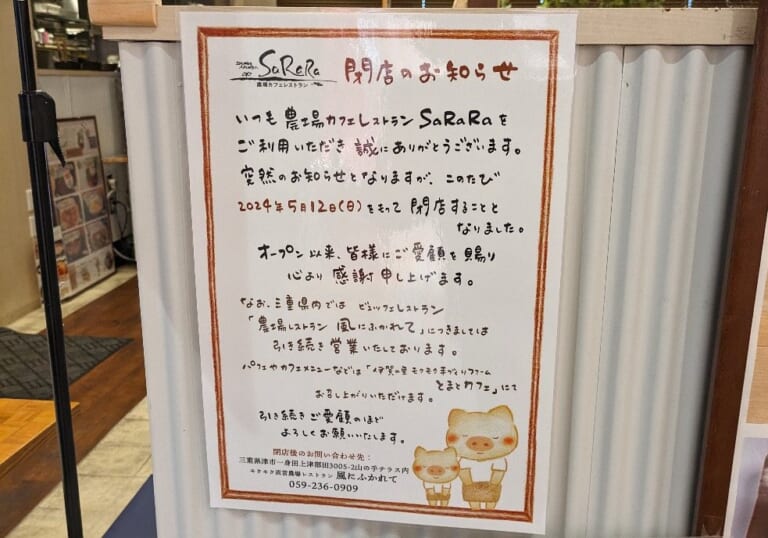 SaRaRa
農場カフェレストラン
閉店のお知らせ
いつも農場カフェレストランSaRaRaを
ご利用いただき誠にありがとうございます。
突然のお知らせとなりますが、このたび
2024年5月12日(日)をもって閉店することと
なりました。
オープン以来、皆様にご愛顧を賜り
心より感謝申し上げます。
なお、三重県内では ビュッフェレストラン
「農場レストラン 風にふかれて」につきましては
引き続き営業いたしております。
パフェやカフェメニューなどは「伊賀の里 モクモク手づくりファーム
とまとカフェ」にて
お召し上がりいただけます。
引き続きご愛顧のほど
よろしくお願いいたします。
閉店後のお問い合わせ先：
三重県津市一身田上津部田3005-2山の手テラス内
モクモク直営農場レストラン 風にふかれて
059-236-0909